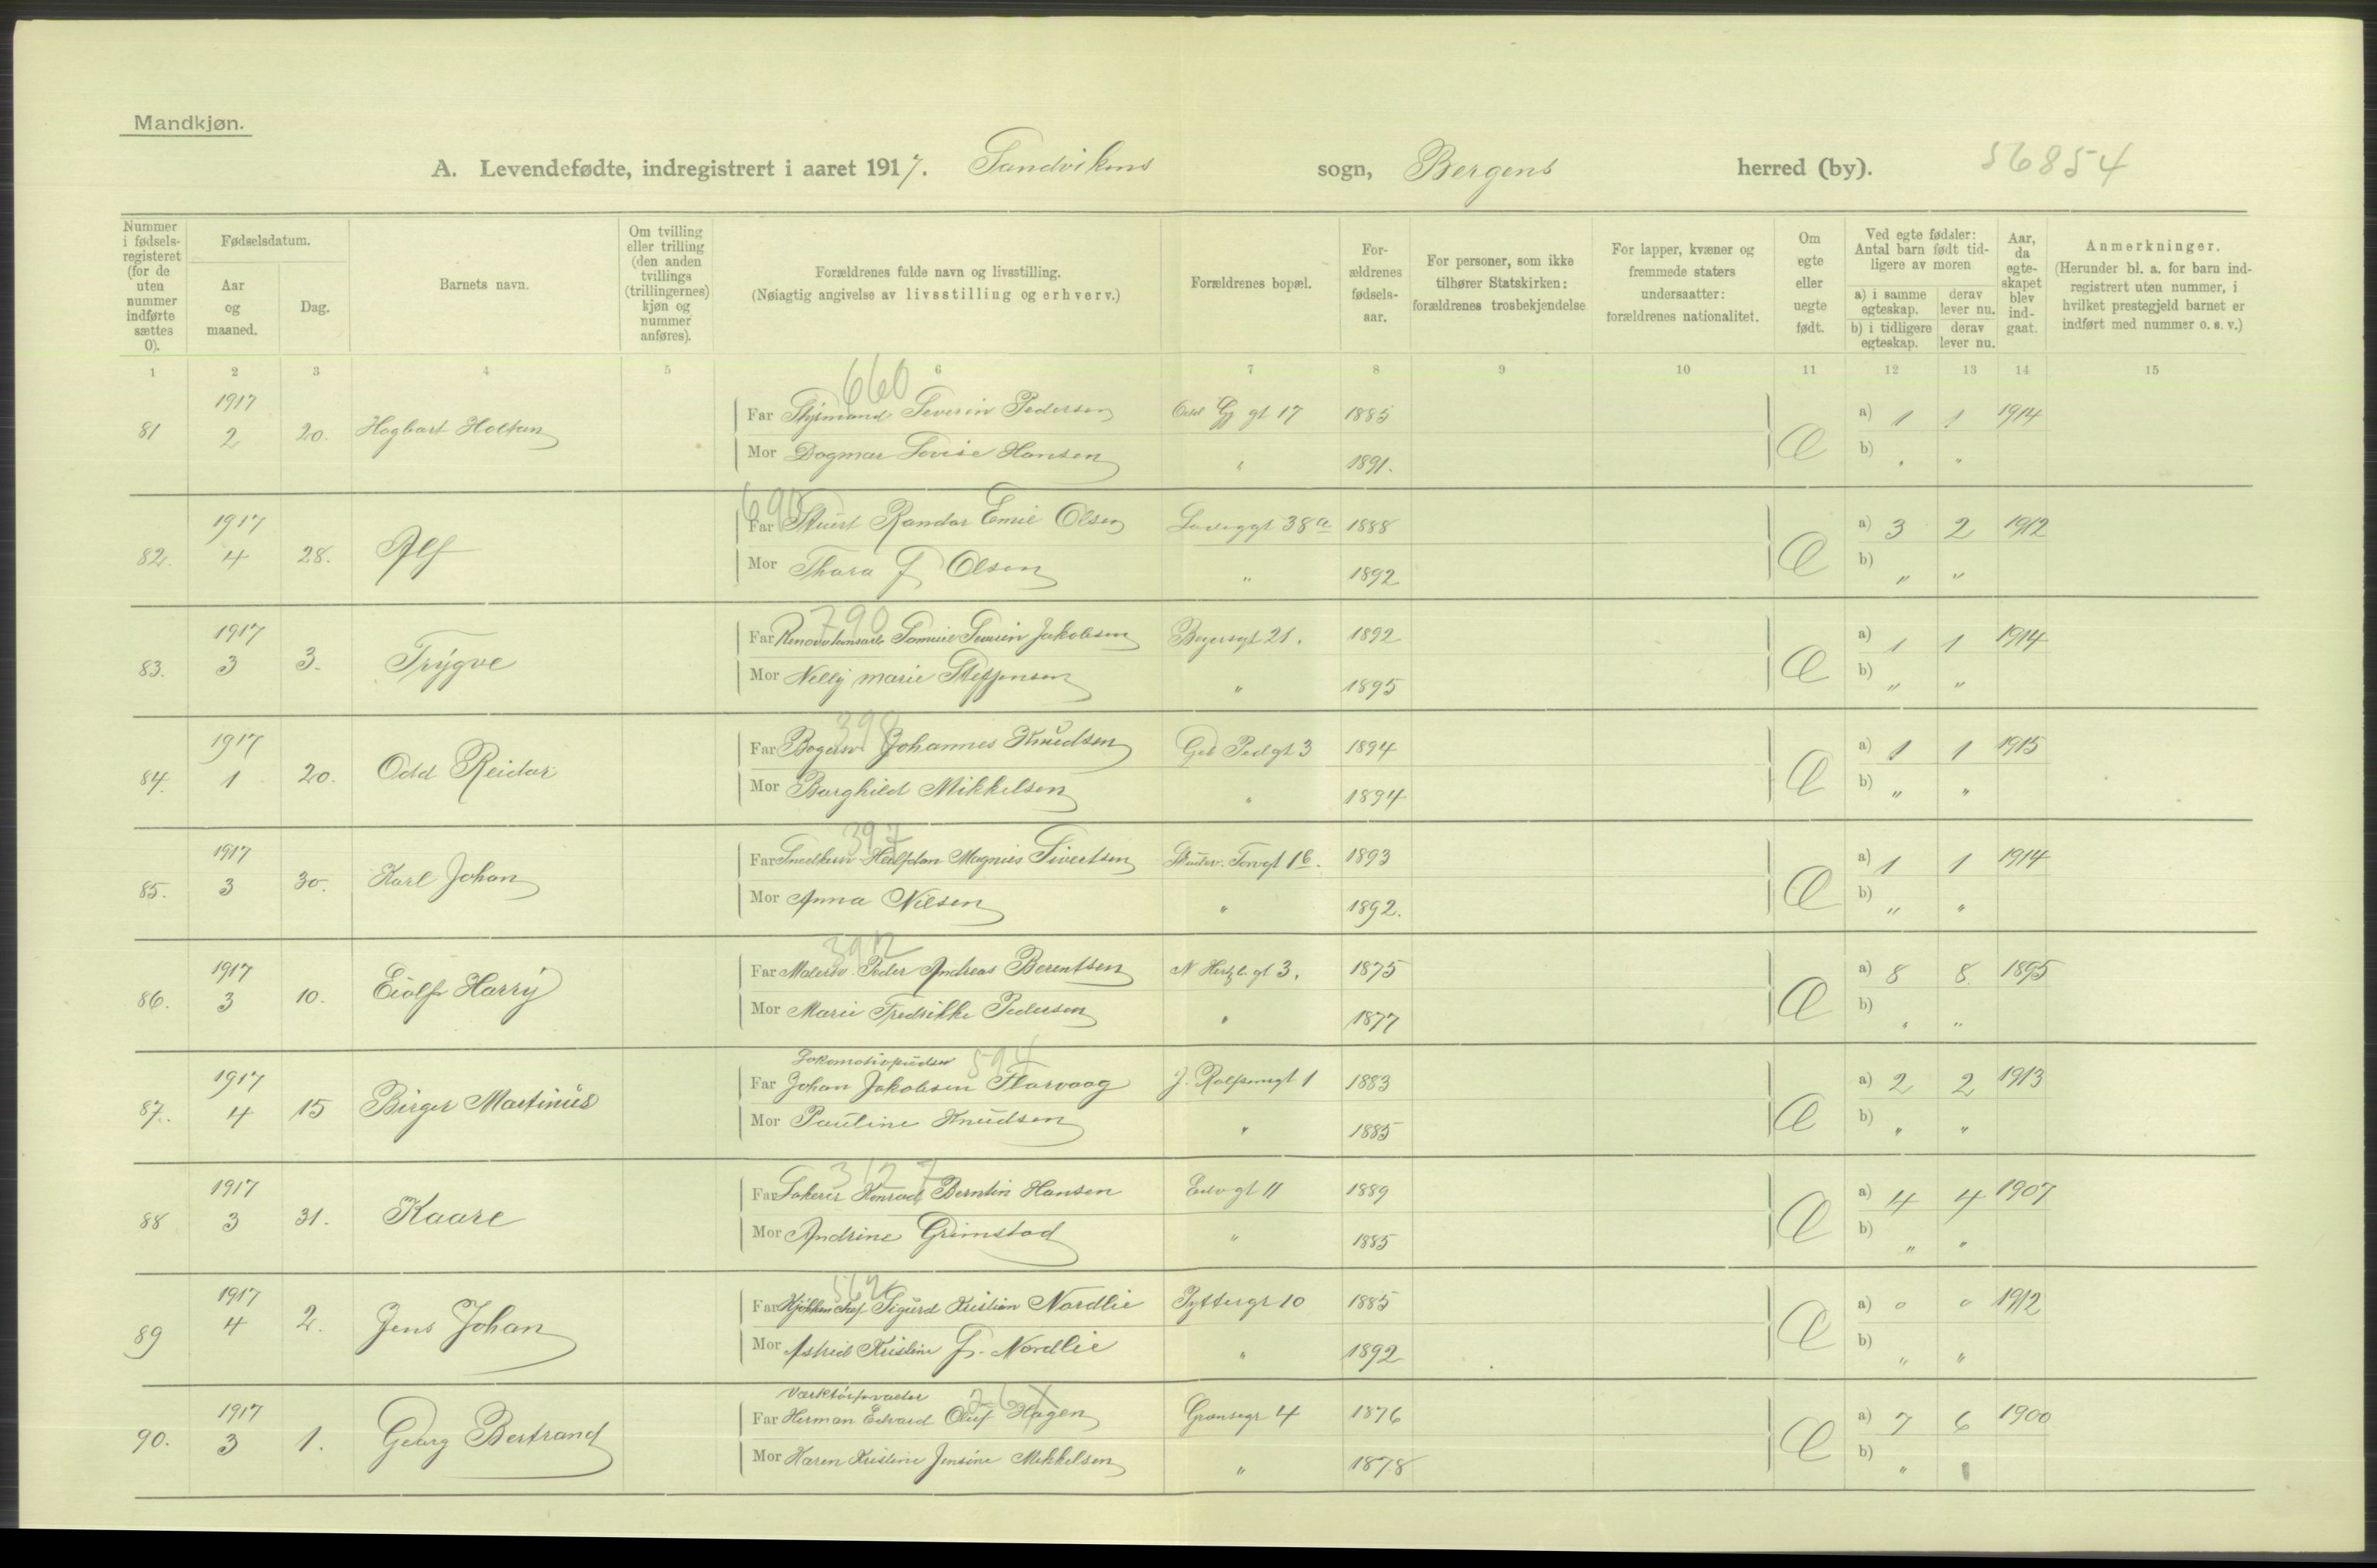 Mandkjøn.
A. Levendefødte, indregistrert i aaret 1917. Sandvikens sogn, Bergens herred (by). 56854
Nummer i fødsels-registeret (for de uten nummer indførte sættes 0).
Fødselsdatum.
Aar og maaned.
Dag.
Barnets navn.
Om tvilling eller trilling (den anden tvillings (trillingernes) kjøn og nummer anføres).
Forældrenes fulde navn og livsstilling.
(Nøiagtig angivelse av livsstilling og erhverv.)
Forældrenes bopæl.
For-ældrenes fødsels-aar.
For personer, som ikke tilhører Statskirken: forældrenes trosbekjendelse
For lapper, kvæner og fremmede staters undersaatter: forældrenes nationalitet.
Om egte eller uegte født.
Ved egte fødsler: Antal barn født tid-ligere av moren
a) i samme egteskap.
derav lever nu.
b) i tidligere egteskap.
derav lever nu.
Aar, da egte-skapet blev ind-gaat.
Anmerkninger.
(Herunder bl. a. for barn ind-registrert uten nummer, i hvilket prestegjeld barnet er indført med nummer o. s. v.)
1 2 3 4 5 6 7 8 9 10 11 12 13 14 15
660
81 1917 2 20. Hagbart Holtan Far Styrmand Severin Pedersen gt 17 1885 a) 1 1 1914
Mor Dagmar Lovise Hansen " 1891. b) " "
690
82. 1917 4 28. Alf Far Stuert Randor Emil Olsen 38a 1888 a) 3 2 1912
Mor Thora J Olsen " 1892 b) " "
790
83. 1917 3 3. Trygve Far Severin Jakobsen 21. 1892 a) 1 1 1914
Mor Nelly Marie Steffensen " 1895 b) " "
84. 1917 1 20. Odd Reidar Far Johannes Knudsen Ped gt 3 1894 a) 1 1 1915
Mor Borghild Mikkelsen " 1894 b) " "
397
85. 1917 3 30. Karl Johan Far Halfdan Magnus Sivertsen 1b. 1893 a) 1 1 1914
Mor Anna Nilsen " 1892. b) " "
86. 1917 3 10. Eiolf Harry Far Malersv Peder Andreas Berentsen gt 3. 1875 a) 8 8 1895
Mor Marie Fredrikke Pedersen " 1877 b) " "
Lokomotivpudser 594
87. 1917 4 15 Birger Martinus Far Johan Jakobsen Flarvaag J. 1 1883 a) 2 2 1913
Mor Pauline Knudsen " 1885 b) " "
3127
88 1917 3 31. Kaare Far Konrad Berntin Hansen gt 11 1889 a) 4 4 1907
Mor Andrine Grimstad " 1885 b) " "
89 1917 4 2. Jens Johan Far Kjøkkenchef Sigurd Kristian Nordlie 10 1885 a) 0 0 1912
Mor Astrid Kristine J. Nordlie " 1892 b) " "
90. 1917 3 1. Georg Bertrand Far Herman Edvard Oluf Hagen 4 1876 a) 7 6 1900
Mor Karen Kristine Jensine Mikkelsen " 1878 b) "